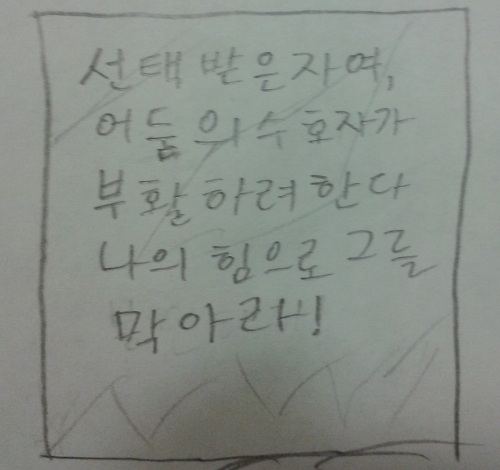 선택받은자여,
어둠의수호자가
부활하려한다
나의힘으로그를
막아라!